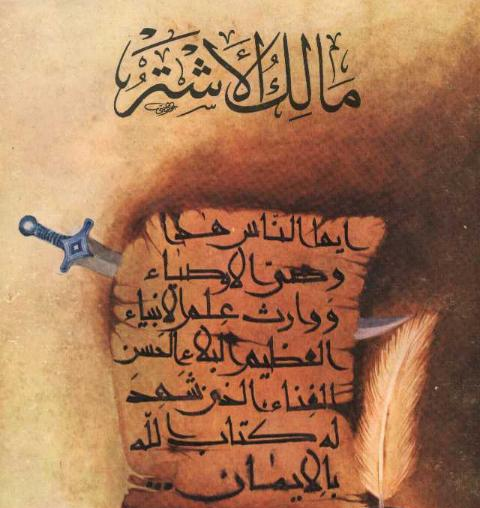 مَالِكُ الأَشْتَرُ
ايها النّاس هذا
وصيّ الاوصياء
ووارث عِلم الانبياء
العظيم البلاء الحسن
الغناء الذي شهِدَ
له كتاب الله
بالإيمان...